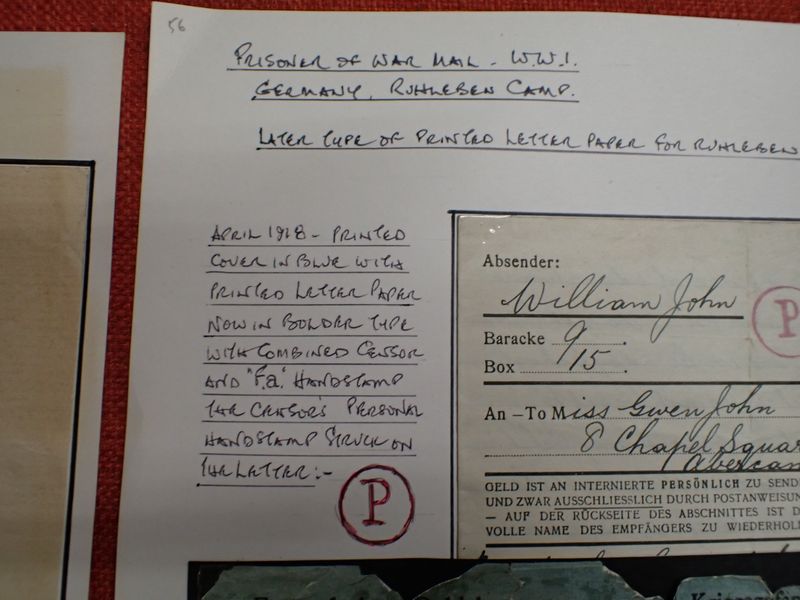 56
PRISONER OF WAR MAIL - W.W.1.
GERMANY, RUHLEBEN CAMP.
LATER TYPE OF PRINTED LETTER PAPER FOR RUHLEBEN
APRIL 1918 - PRINTED
COVER IN BLUE WITH
PRINTED LETTER PAPER
NOW IN BOLDER TYPE
WITH COMBINED CENSOR
AND "F.a." HANDSTAMP
THE CENSOR'S PERSONAL
HANDSTAMP STRUCK ON
THE LETTER:-
P
Absender:
William John
P
Baracke 9
Box 15
An - To Miss Gwen John
8 Chapel Squar
Abercan
GELD IST AN INTERNIERTE PERSÖNLICH ZU SEND
UND ZWAR AUSSCHLIESSLICH DURCH POSTANWEISUN
- AUF DER RÜCKSEITE DES ABSCHNITTES IST D
VOLLE NAME DES EMPFÄNGERS ZU WIEDERHOL